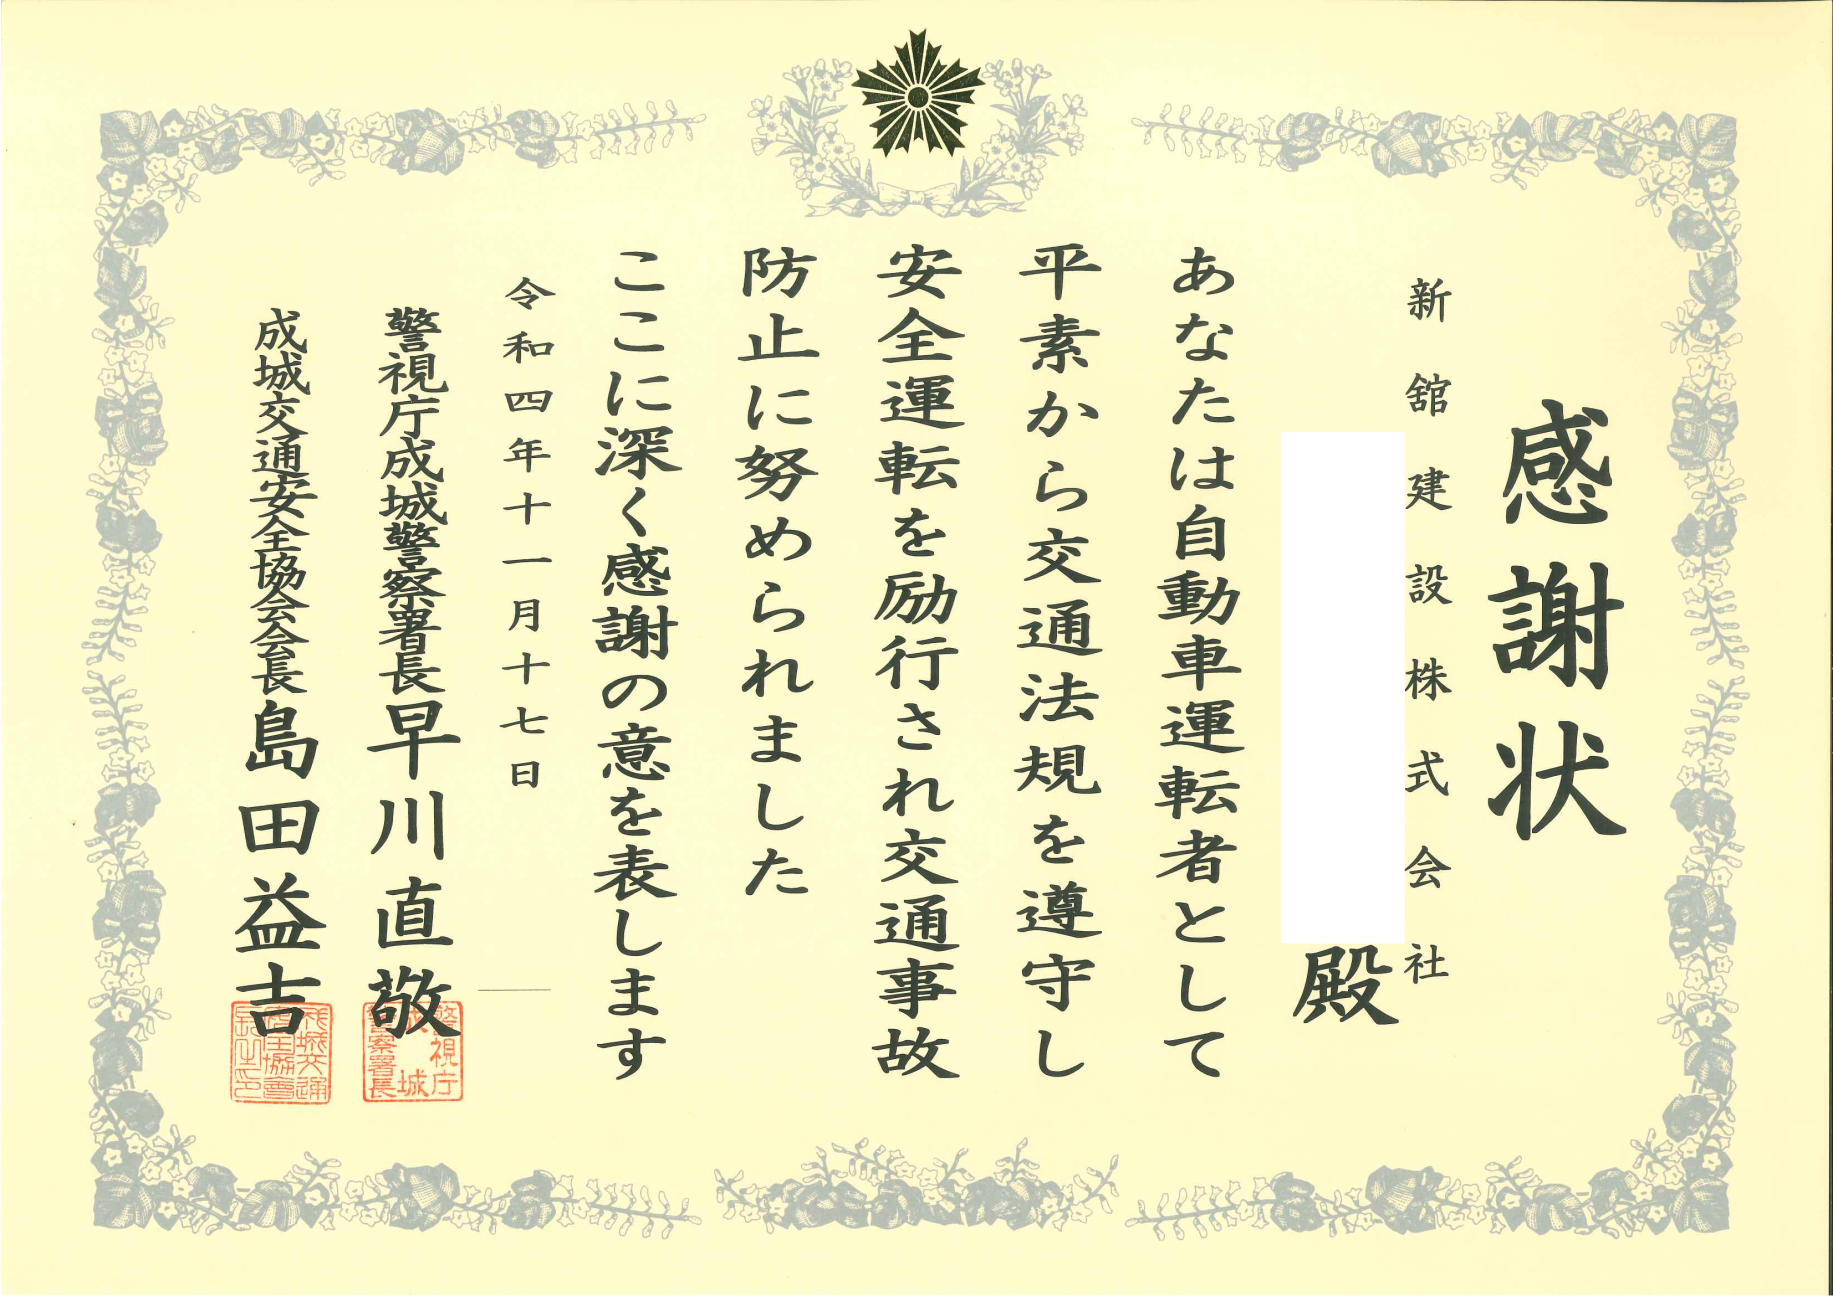 感謝状
新舘建設株式会社
殿
あなたは自動車運転者として
平素から交通法規を遵守し
安全運転を励行され交通事故
防止に努められました
ここに深く感謝の意を表します
令和四年十一月十七日
警視庁成城警察署長早川直敬
成城交通安全協会会長島田益吉
警視庁
成城
警察署長
成城交通
安全協會
長之印